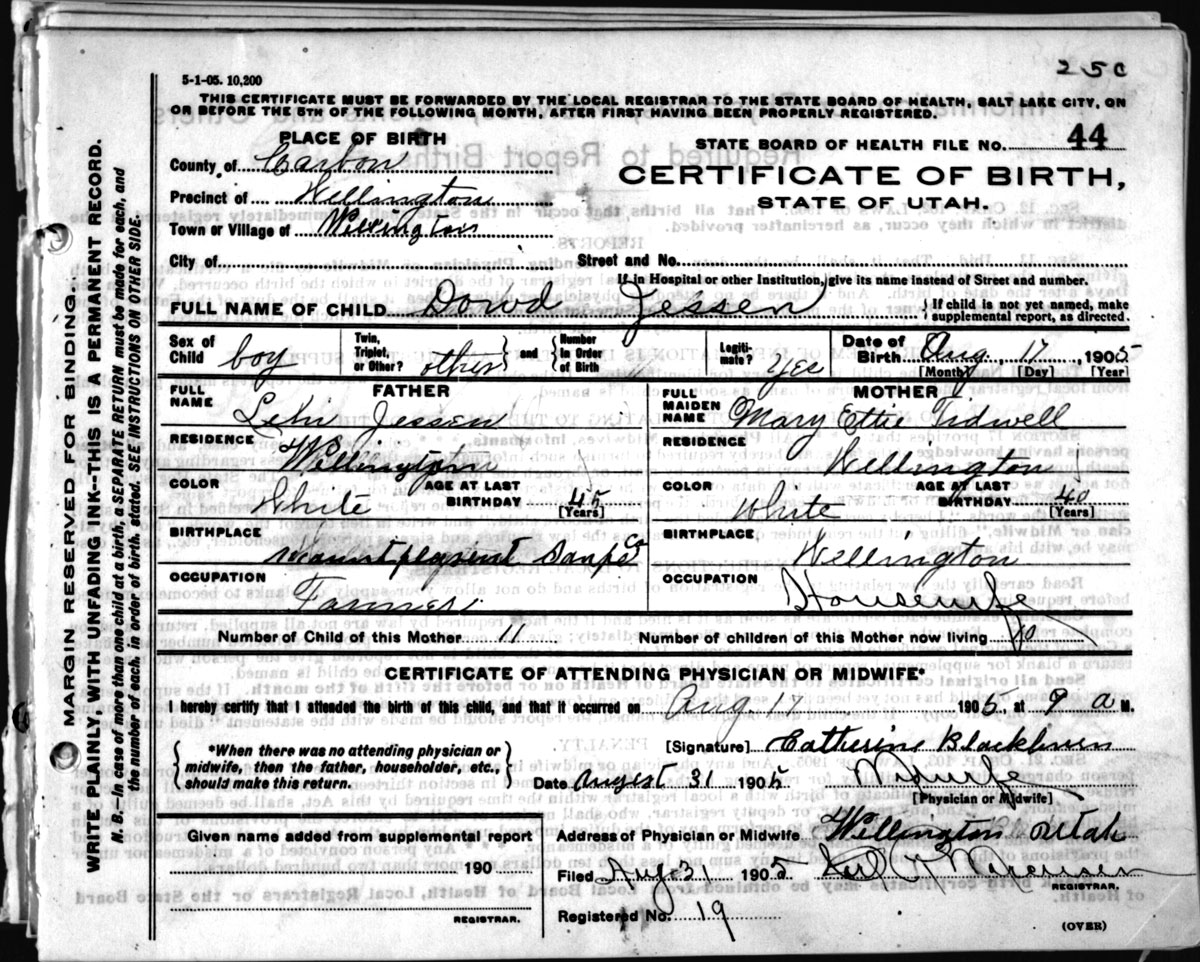 5-1-05. 10,200
25c
THIS CERTIFICATE MUST BE FORWARDED BY THE LOCAL REGISTRAR TO THE STATE BOARD OF HEALTH, SALT LAKE CITY, ON
OR BEFORE THE 5TH OF THE FOLLOWING MONTH, AFTER FIRST HAVING BEEN PROPERLY REGISTERED.
PLACE OF BIRTH
County of Carbon
Precinct of Wellington
Town or Village of Wellington
STATE BOARD OF HEALTH FILE NO. 44
CERTIFICATE OF BIRTH,
STATE OF UTAH.
City of Street and No.
If in Hospital or other Institution, give its name instead of Street and number.
FULL NAME OF CHILD Dowd Jessen
{ If child is not yet named, make
supplemental report, as directed.
Sex of Child boy
Twin, Triplet, or Other? other } and { Number In Order of Birth
Legiti-mate? yes
Date of Birth Aug 17, 1905
[Month] [Day] [Year]
FATHER
FULL NAME Lehi Jessen
RESIDENCE Wellington
COLOR White AGE AT LAST BIRTHDAY 45
[Years]
BIRTHPLACE Mount pleasent Sanpe Co
OCCUPATION Farmer
MOTHER
FULL MAIDEN NAME Mary Ettie Tidwell
RESIDENCE Wellington
COLOR White AGE AT LAST BIRTHDAY 40
[Years]
BIRTHPLACE Wellington
OCCUPATION Housewife
Number of Child of this Mother 11 Number of children of this Mother now living 10
CERTIFICATE OF ATTENDING PHYSICIAN OR MIDWIFE*
I hereby certify that I attended the birth of this child, and that it occurred on Aug 17 1905, at 9 a M.
{ *When there was no attending physician or
midwife, then the father, householder, etc.,
should make this return. }
[Signature] Catherine Blackburn
Date August 31 1905 Midwife
[Physician or Midwife]
Given name added from supplemental report
190
REGISTRAR.
Address of Physician or Midwife Wellington Utah
Filed Aug 31 1905
REGISTRAR.
Registered No. 19
(OVER)
MARGIN RESERVED FOR BINDING
WRITE PLAINLY WITH UNFADING INK--THIS IS A PERMANENT RECORD.
N. B.--In case of more than one child at a birth, a SEPARATE RETURN must be made for each, and
the number of each, in order of birth, stated. SEE INSTRUCTIONS ON OTHER SIDE.